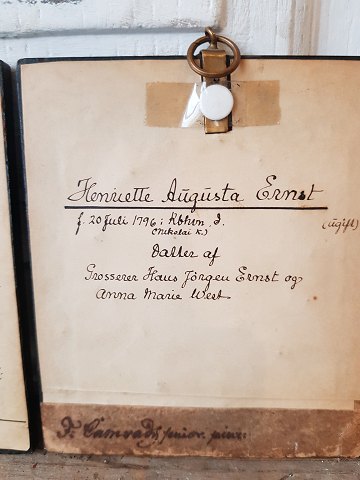 Henriette Augusta Ernst
f. 20 Juli 1796 i Kbhvn. d. (ugift)
(Nikolai K.)
Datter af
Grosserer Hans Jörgen Ernst og
Anna Marie West.
F. Camradt senior. pinx.